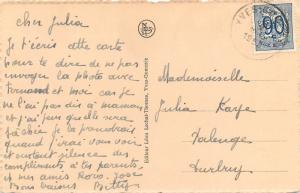 Cher Julia
Je t'écris cette carte
pour te dire de ne pas
envoyer la photo avec
Fernand et moi car je
ne l'ai pas dis à maman
et j'ai peur quelle sera
fâchée je la prendrais
quand j'irais vous voir
et surtout silence des
compliments à tes parents,
et mes amis Rose, José
Bons baisers Betty
Editeur Léon
YVE
90
Mademoiselle
Julia Kaye
Palenge
Durbuy